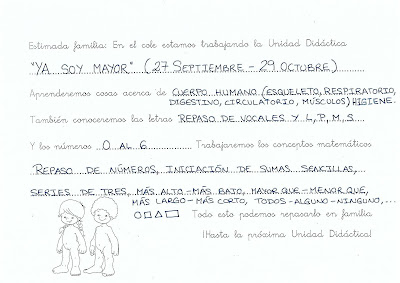 Estimada familia: En el cole estamos trabajando la Unidad Didáctica
"YA SOY MAYOR" (27 SEPTIEMBRE - 29 OCTUBRE)
Aprenderemos cosas acerca de CUERPO HUMANO (ESQUELETO, RESPIRATORIO,
DIGESTIVO, CIRCULATORIO, MÚSCULOS) HIGIENE.
También conoceremos las letras REPASO DE VOCALES Y L, P, M, S
Y los números 0 AL 6 Trabajaremos los conceptos matemáticos
REPASO DE NÚMEROS, INICIACIÓN DE SUMAS SENCILLAS,
SERIES DE TRES, MÁS ALTO - MÁS BAJO, MAYOR QUE - MENOR QUE,
MÁS LARGO - MÁS CORTO, TODOS - ALGUNO - NINGUNO,...
Todo esto podemos repasarlo en familia
¡Hasta la próxima Unidad Didáctica!